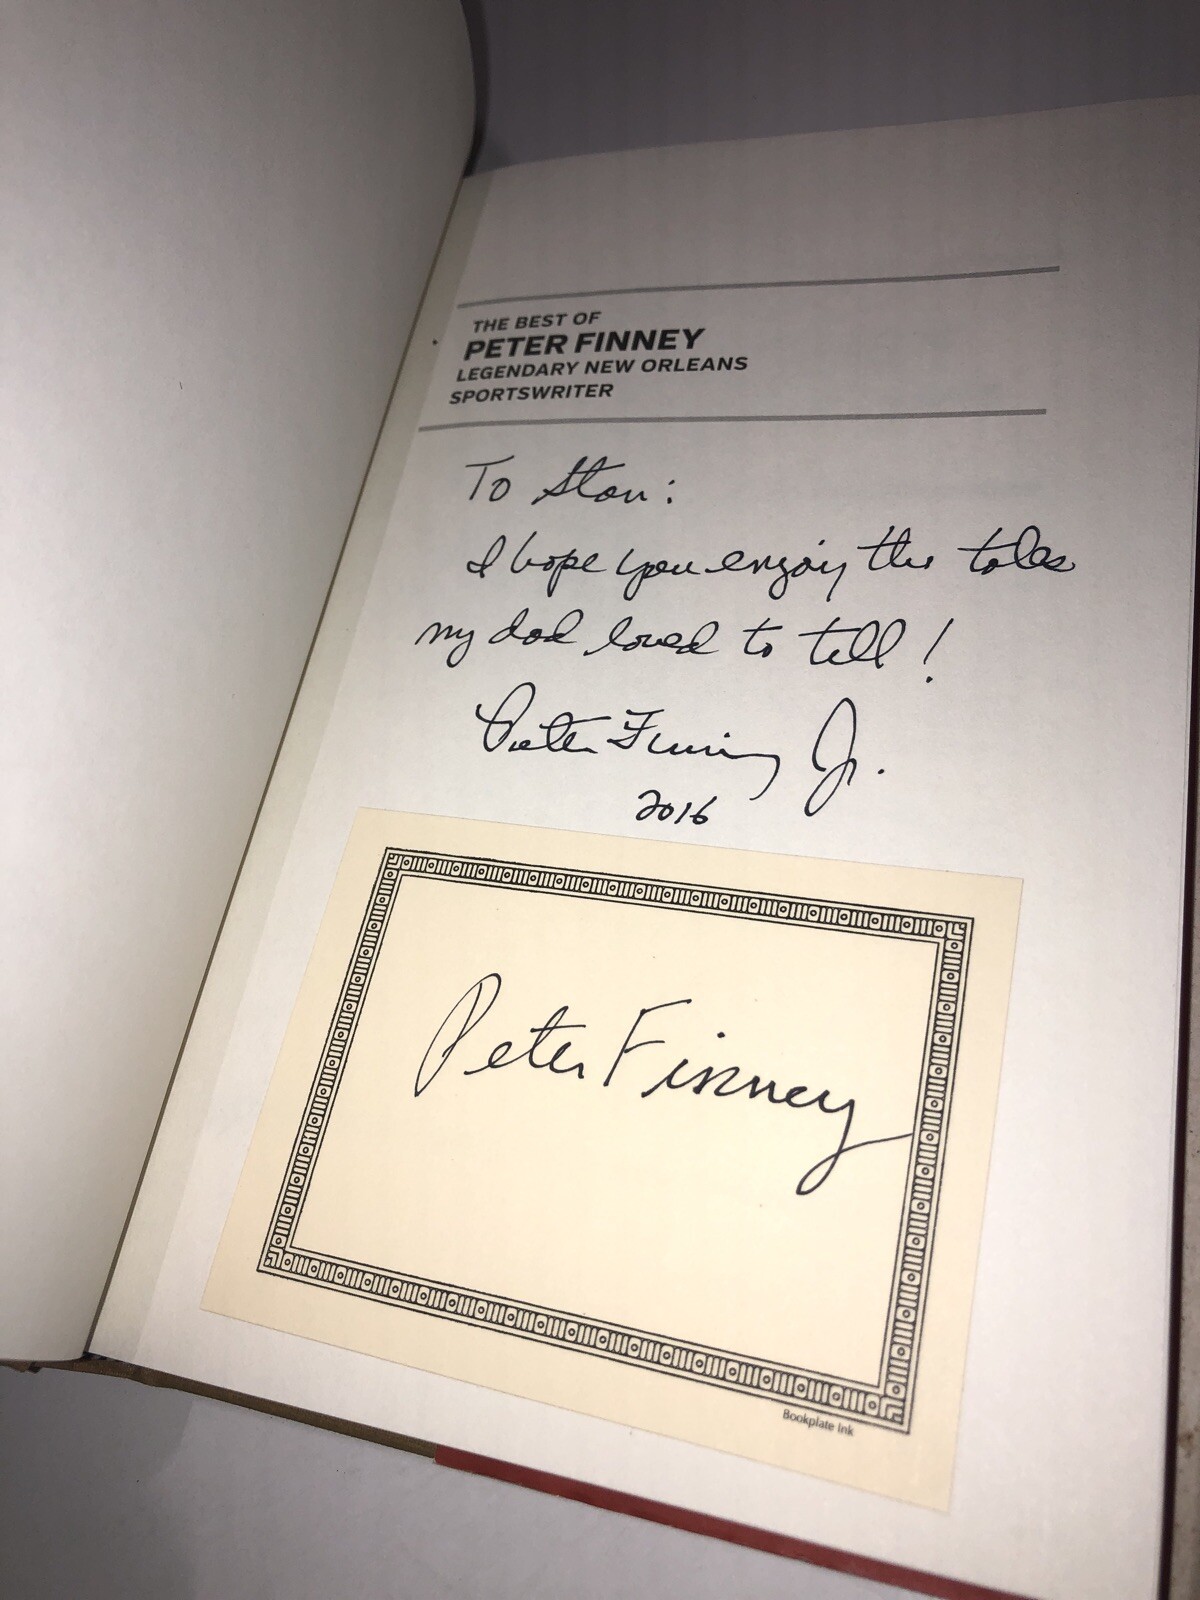 THE BEST OF
PETER FINNEY
LEGENDARY NEW ORLEANS
SPORTSWRITER
To Stan:
I hope you enjoy the tales
my dad loved to tell!
Peter Finney Jr.
2016
Peter Finney
Bookplate Ink